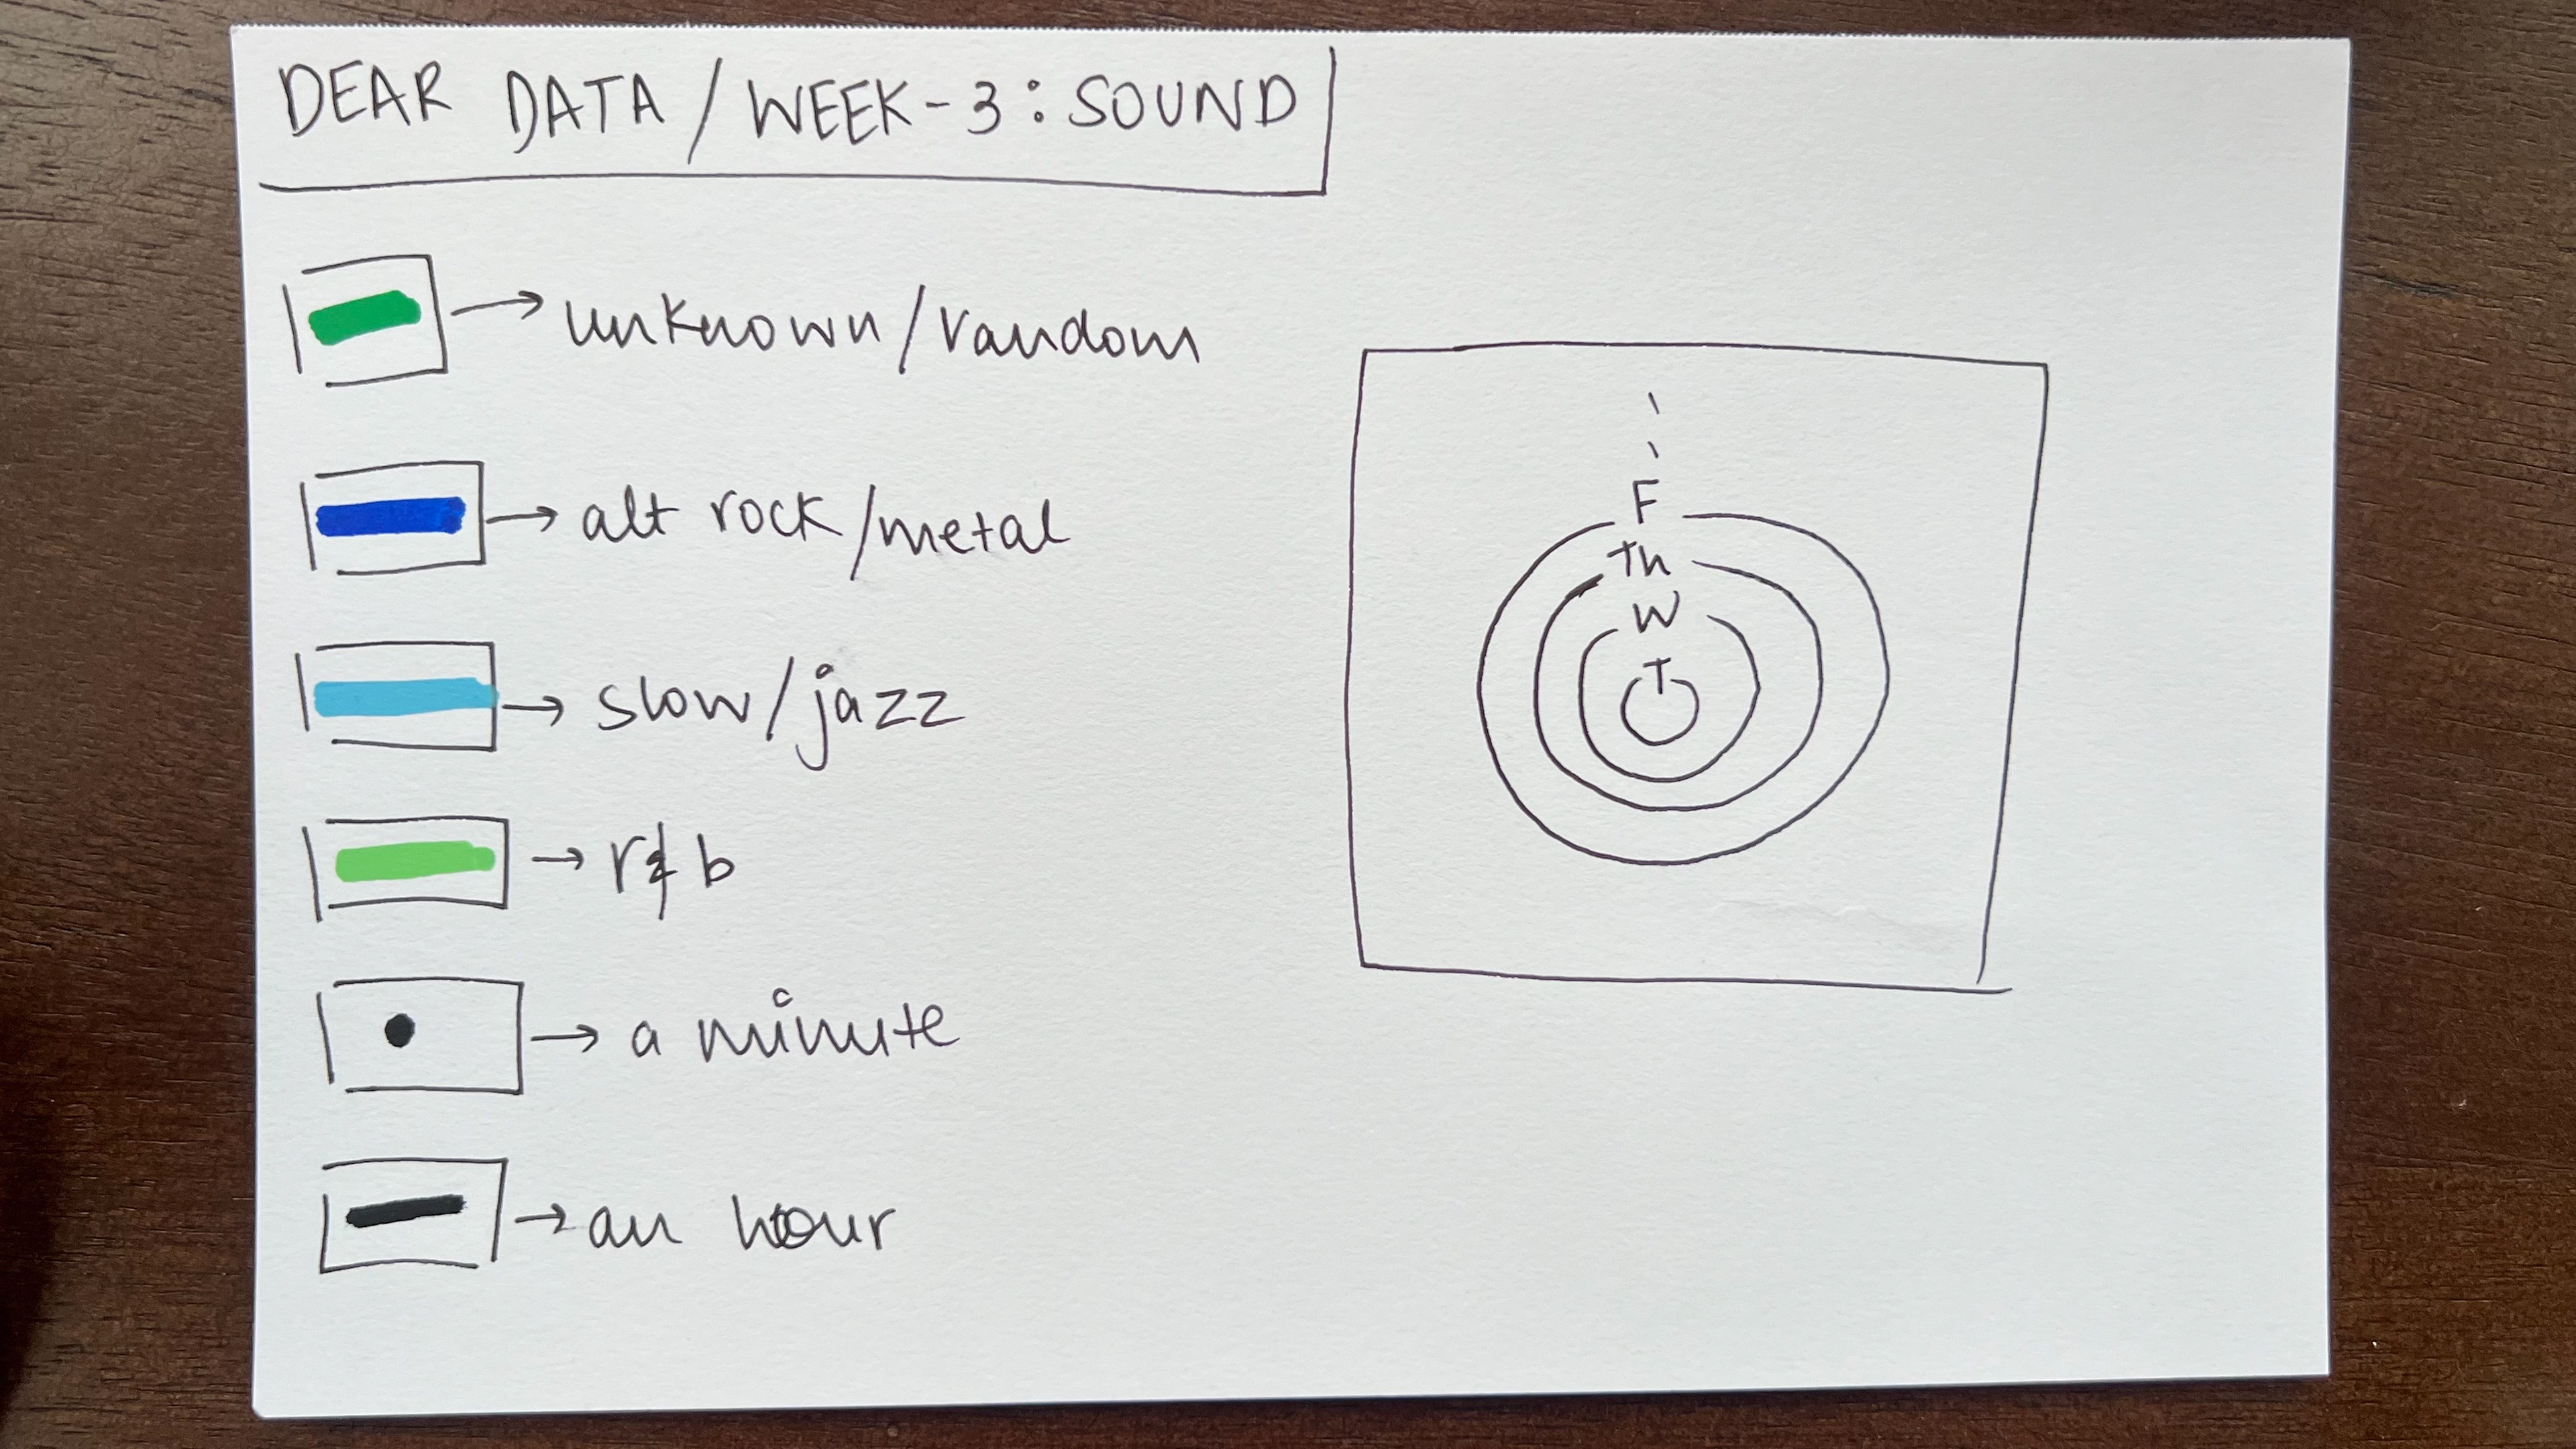 DEAR DATA / WEEK-3: SOUND
unknown/random
alt rock/metal
slow/jazz
r&b
a minute
an hour
F
Th
W
T